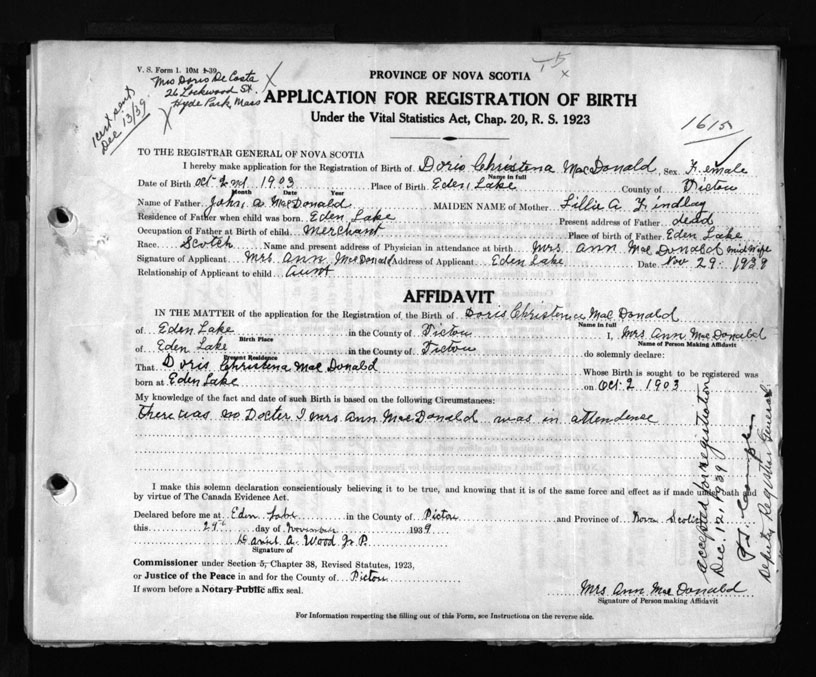 V. S. Form 1. 10M 1-39.
Mrs Doris De Coste
26 Lockwood St.
Hyde Park, Mass
1 cert sent
Dec 13/39
PROVINCE OF NOVA SCOTIA
APPLICATION FOR REGISTRATION OF BIRTH
Under the Vital Statistics Act, Chap. 20, R. S. 1923
1615
TO THE REGISTRAR GENERAL OF NOVA SCOTIA
I hereby make application for the Registration of Birth of Doris Christena MacDonald, Sex Female
Name in full
Date of Birth Oct 2nd 1903 Place of Birth Eden Lake County of Pictou
Month Date Year
Name of Father John A MacDonald MAIDEN NAME of Mother Lillie A. Findlay
Residence of Father when child was born Eden Lake Present address of Father dead
Occupation of Father at Birth of child Merchant Place of birth of Father Eden Lake
Race Scotch Name and present address of Physician in attendance at birth Mrs. Ann MacDonald midwife
Signature of Applicant Mrs. Ann MacDonald Address of Applicant Eden Lake Date Nov 29 -
Relationship of Applicant to child aunt
AFFIDAVIT
IN THE MATTER of the application for the Registration of the Birth of Doris Christena MacDonald
Name in full
of Eden Lake in the County of Pictou I, Mrs Ann MacDonald
Birth Place Name of Person Making Affidavit
of Eden Lake in the County of Pictou do solemnly declare:
Present Residence
That Doris Christena MacDonald Whose Birth is sought to be registered was
born at Eden Lake on Oct 2 1903
My knowledge of the fact and date of such Birth is based on the following Circumstances:
There was no Docter I Mrs Ann MacDonald was in attendence
I make this solemn declaration conscientiously believing it to be true, and knowing that it is of the same force and effect as if made under oath and
by virtue of The Canada Evidence Act.
Declared before me at Eden Lake in the County of Pictou and Province of Nova Scotia
this 29th day of November 1939
Daniel A. Wood J. P.
Signature of
Commissioner under Section 5, Chapter 38, Revised Statutes, 1923,
or Justice of the Peace in and for the County of Pictou
If sworn before a Notary Public affix seal.
Mrs. Ann MacDonald
Signature of Person making Affidavit
accepted for registration
Dec. 12, 1939
Deputy Registrar General
For Information respecting the filling out of this Form, see Instructions on the reverse side.